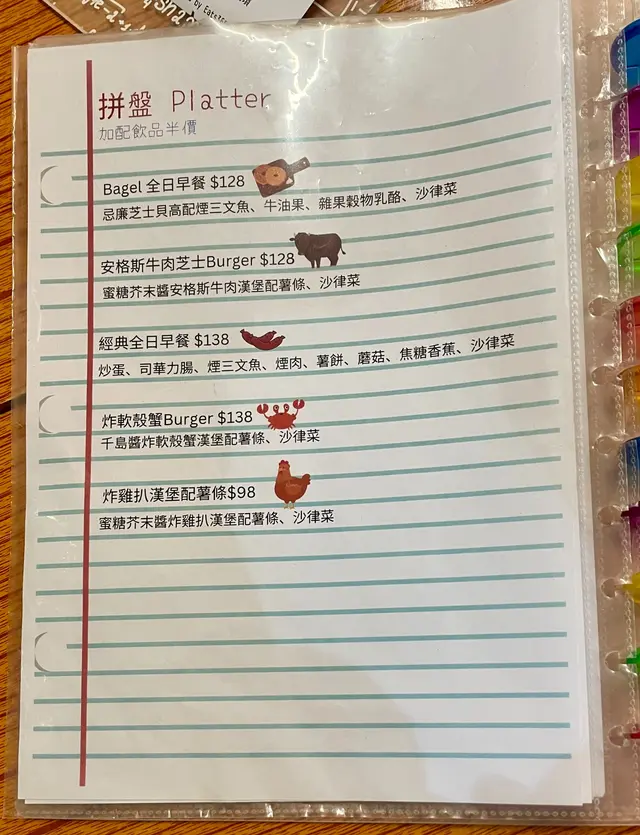 拼盤 Platter
加配飲品半價
Bagel 全日早餐 $128
忌廉芝士貝高配煙三文魚、牛油果、雜果穀物乳酪、沙律菜
安格斯牛肉芝士Burger $128
蜜糖芥末醬安格斯牛肉漢堡配薯條、沙律菜
經典全日早餐 $138
炒蛋、司華力腸、煙三文魚、煙肉、薯餅、蘑菇、焦糖香蕉、沙律菜
炸軟殼蟹Burger $138
千島醬炸軟殼蟹漢堡配薯條、沙律菜
炸雞扒漢堡配薯條$98
蜜糖芥末醬炸雞扒漢堡配薯條、沙律菜